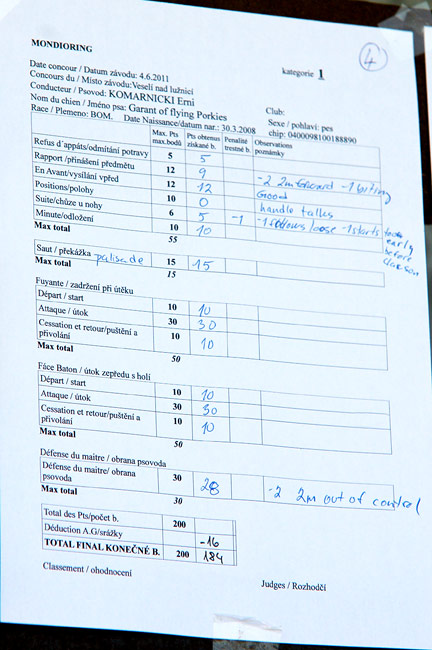 MONDIORING
kategorie 1
4
Date concour / Datum závodu: 4.6.2011
Concours du / Místo závodu: Veselí nad lužnicí
Conducteur / Psovod: KOMARNICKI Erni
Nom du chien / Jméno psa: Garant of flying Porkies
Club:
Race / Plemeno: BOM. Date Naissance/datum nar.: 30.3.2008
Sexe / pohlaví: pes
chip: 0400098100188890
Max. Pts max.bodů Pts obtenus získané b. Penalité trestné b. Observations poznámky
Refus d´appâts/odmítání potravy 5 5
Rapport /přinášení předmětu 12 9 -2 2m forward -1 biting
En Avant/vysílání vpřed 12 12 Good
Positions/polohy 10 0 handle talks
Suite/chůze u nohy 6 5 -1 -1 follows loose -1 starts too early before clacson
Minute/odložení 10 10
Max total 55
Saut / překážka palisade 15 15
Max total 15
Fuyante / zadržení při útěku
Départ / start 10 10
Attaque / útok 30 30
Cessation et retour/puštění a přivolání 10 10
Max total 50
Fáce Baton / útok zepředu s holí
Départ / start 10 10
Attaque / útok 30 30
Cessation et retour/puštění a přivolání 10 10
Max total 50
Défense du maitre / obrana psovoda
Défense du maitre/ obrana psovoda 30 28 -2 2m out of control
Max total 30
Total des Pts/počet b. 200
Déduction A.G/srážky -16
TOTAL FINAL KONEČNÉ B. 200 184
Classement / ohodnocení
Judges / Rozhodčí